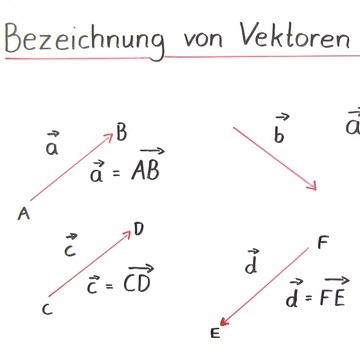 Bezeichnung von Vektoren
a⃗
B
a⃗ = A͞B⃗
A
b⃗
a⃗
c⃗
D
c⃗ = C͞D⃗
C
d⃗
F
d⃗ = F͞E⃗
E